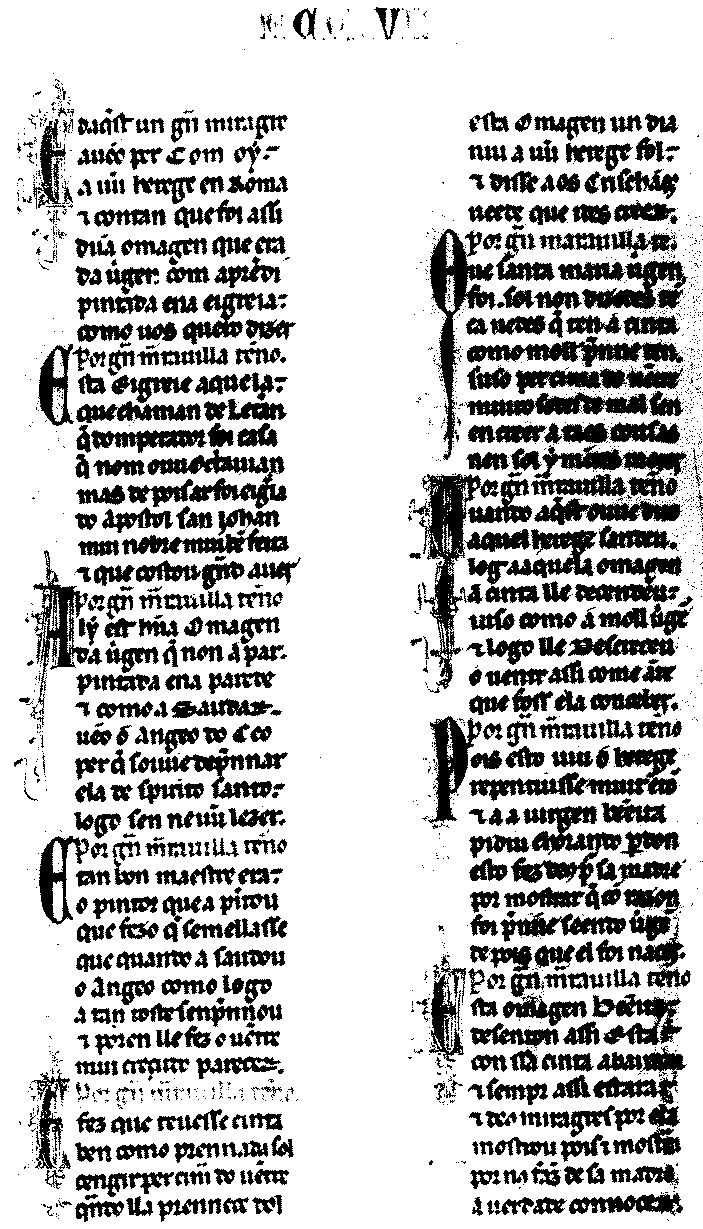 E daq̃st un gñ miragre
aueo per com oý.
a un herege en Roma
⁊ contan que foi assi
dũa omagen que era
da uirgen com aprẽdi
pintada ena eigreia
como uos quero dizer
Por gñ m̃rauilla teño.
Esta eigreie aquela
que chaman de Letrán
q̃ do emperador foi casa
q̃ nom ouue Octauian
mas depois ar foi eigreia
do apostol san Johan
mui nobre mui bẽ feita
⁊ que costou grand auer
Por gñ m̃rauilla teño
Alý est hũa omagen
da uirgen q̃ non á par.
pintada ena parede
⁊ como a saudar
uẽo o angeo do ceo
per q̃ souue deprennar
ela de spirito santo
logo sen neũu lezer.
Por gñ m̃rauilla teño
E tan bon maestre era
o pintor que a pintou
que fezo q̃ semellasse
que quando a saudou
o angeo como logo
a tan toste se nprennou
⁊ poren lle fez o uentre
mui creçudo pareçer.
Por gñ m̃rauilla teño
E fez que teuesse cinta
ben como prennada sol
cengir per cima do uentre
quando lla prennece dol
esta omagen un dia
uiu a un herege fol
⁊ disse aos crischãos
ueede que ides creer.
Por gñ marauilla te.
Que santa maria uirgen
foi. sol non dizedes re
ca ueedes q̃ ten a cinta
como moller prenne ten.
suso per cima do uentre
muito sodes de mal sen
en creer a taes cousas
non sol y mentes meter
Por gñ m̃rauilla teño
Quando aq̃st ouue dito
aquel herege sandeu.
log a aquela omagen
a cinta lle decendeu
iuso como a moller uirgen
⁊ logo lle deserceu
o uentre assi come ante
que foss ela conceber.
Por gñ m̃rauilla teño
Pois esto uiu o herege
repentiusse muit ende
⁊ a a uirgen beeita
pidiu chorando perdon
esto fez deus por sa madre
por mostrar q̃ con razon
foi prenne seendo uirgen
depois que el foi nacer.
Por gñ m̃rauilla teño
Esta omagen beeita
desenton assi esta
con ssa cinta abaixada
⁊ sempr assi estara
⁊ deus miragres por ela
mostrou pois ⁊ mostra
por na faz de sa madre
a uerdade connocer.